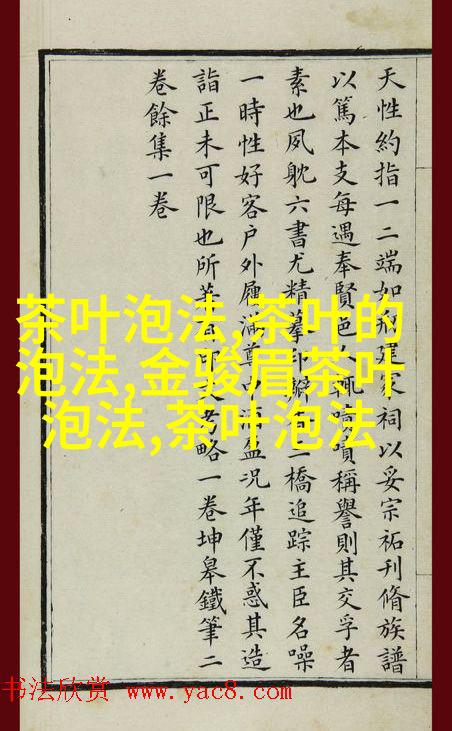 天性約指一二端如建家祠以妥宗祏刊脩族譜
以篤本支每遇奉賢邑人輒嘖嘖稱譽則其交孚者
素也夙躭六書尤精摹印三橋追踪主臣名噪
一時性好客户外屨滿尊中酒盈況年僅不惑其造
詣正未可限也所印考略一卷坤皋鐵筆二
卷餘集一卷
茶叶泡法,茶叶的
泡法,金骏眉茶叶
泡法,茶叶泡法
书法欣赏 www.yac8.com